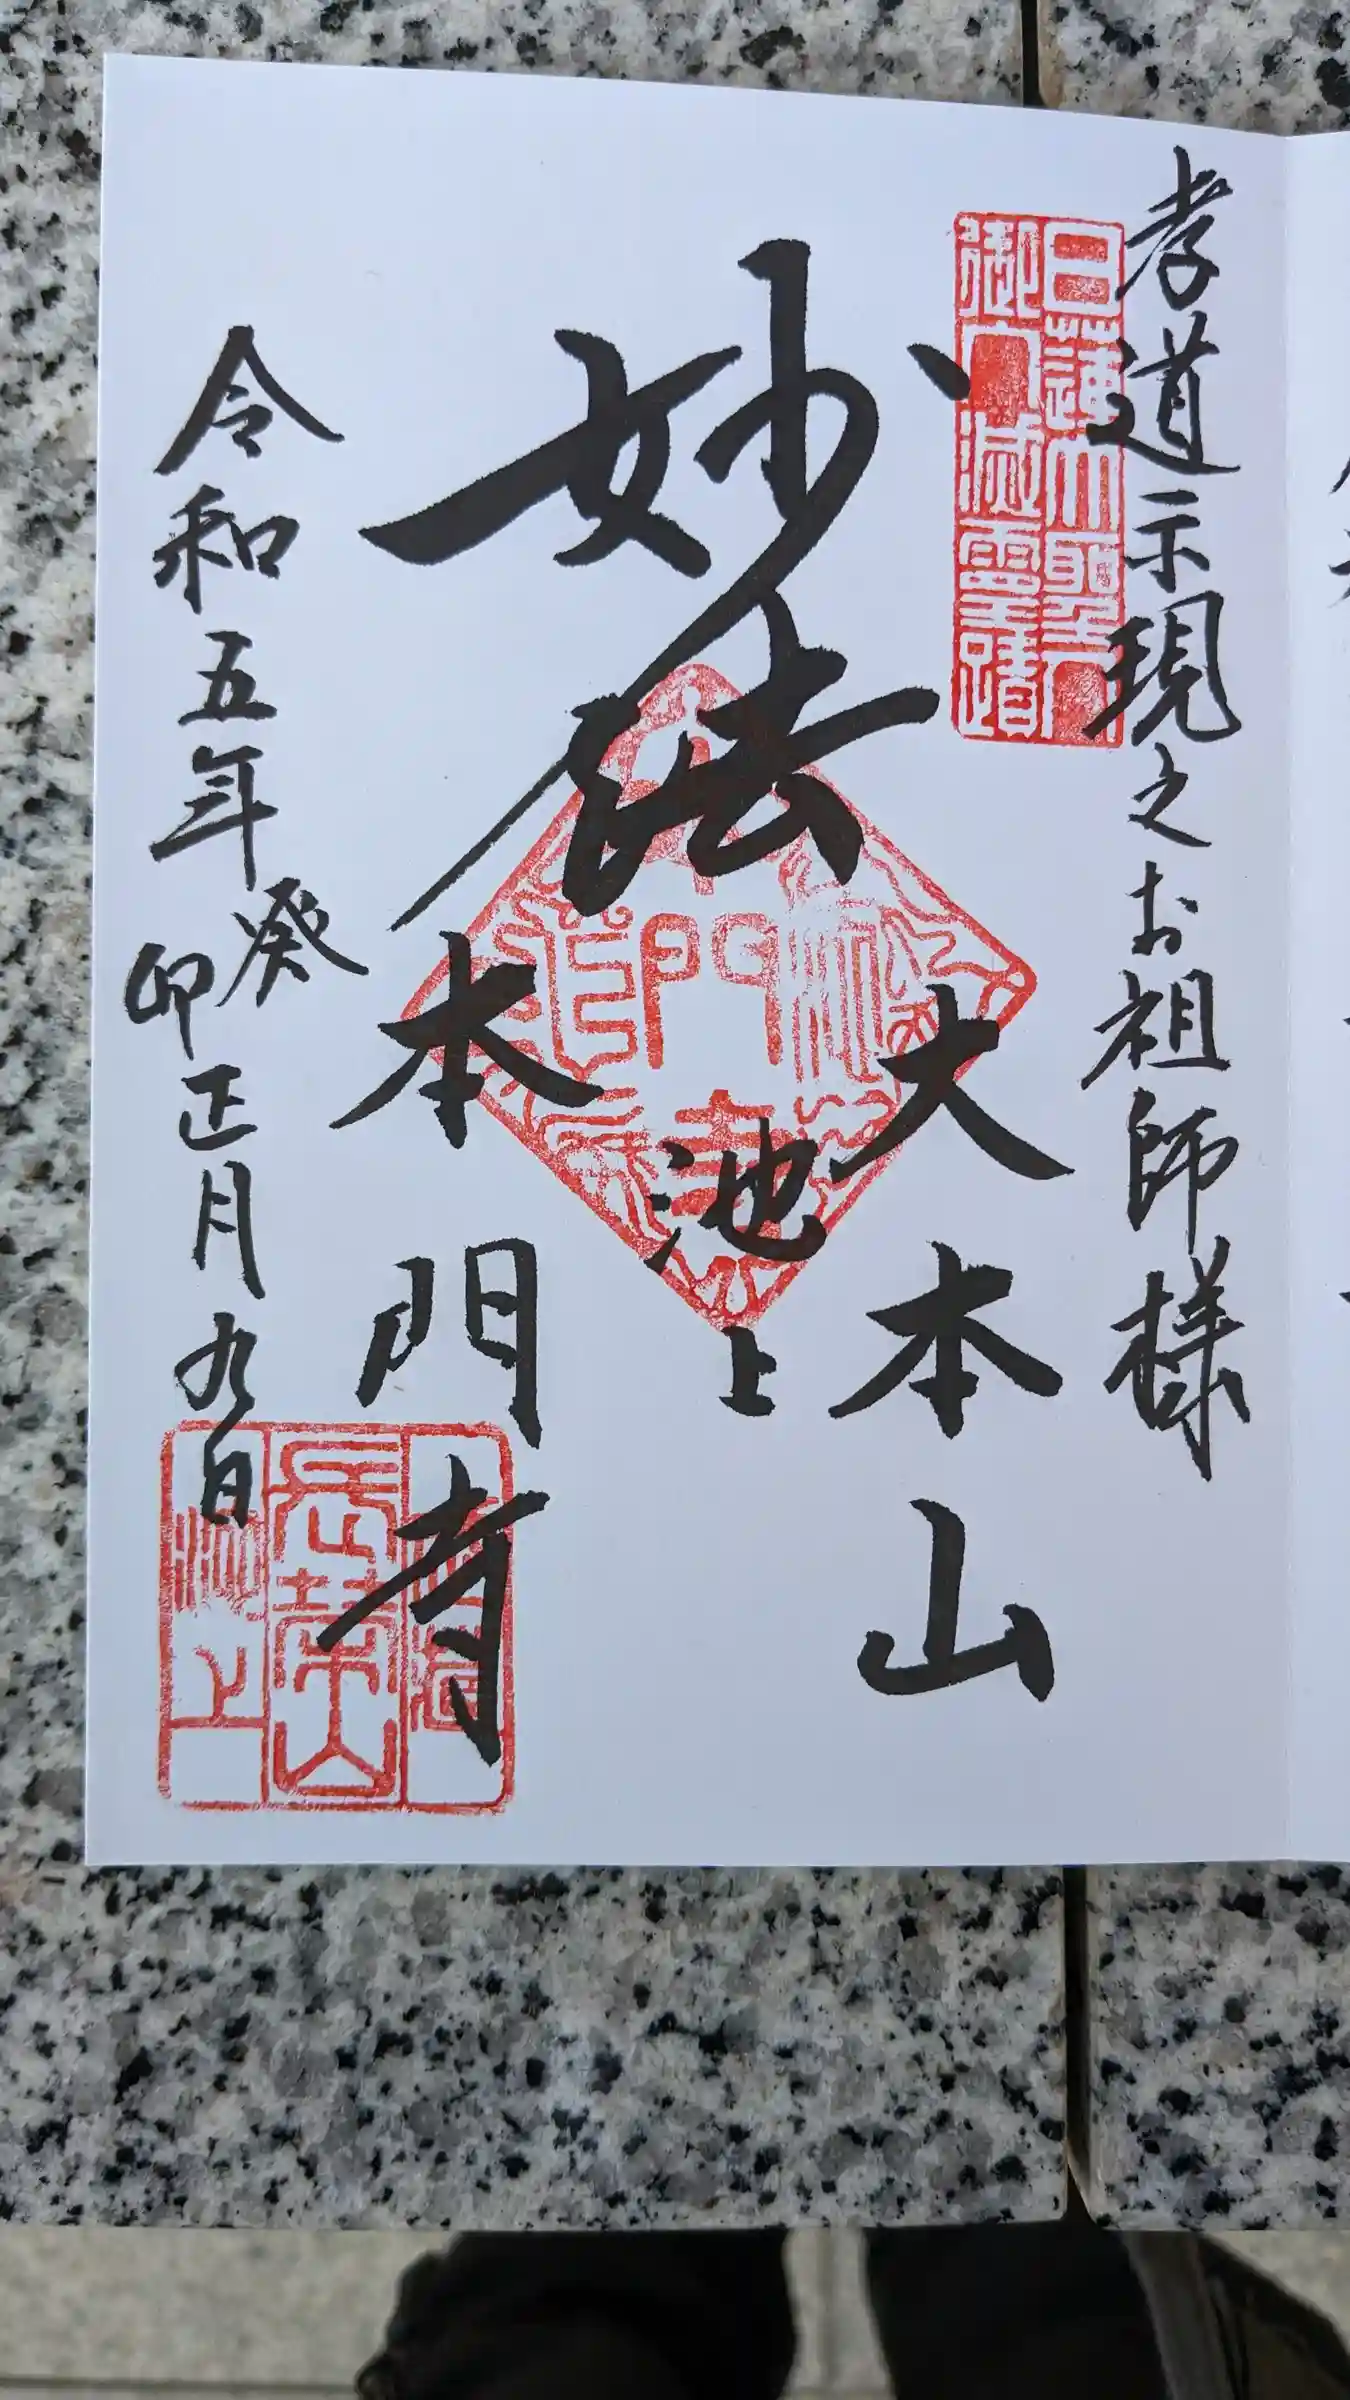 孝道示現之お祖師様
日蓮大聖人
御入滅霊蹟
妙法
大本山
池上
本門寺
令和五年癸卯正月九日
長栄山
池上